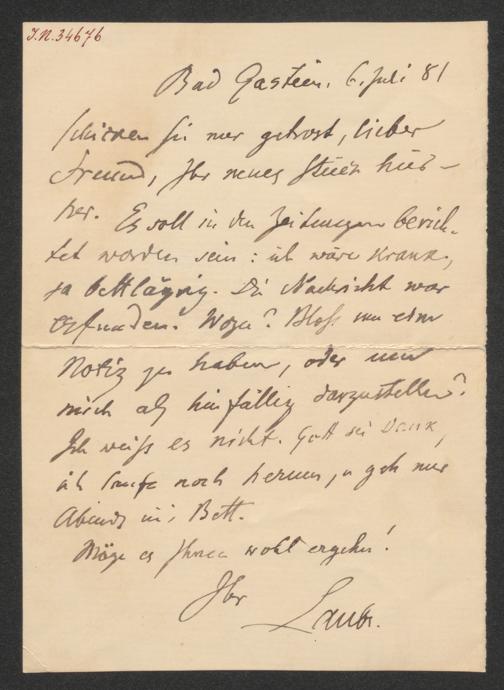 J.N. 34676
Bad Gastein. 6. Juli 81
Schicken Sie nur getrost, lieber
Freund, Ihr neues Stück hie-
her. Es soll in den Zeitungen berich-
tet worden sein: ich wäre krank,
ja bettlägrig. Die Nachricht war
erfunden. Wozu? Bloß um eine
Notiz zu haben, oder um
mich als hinfällig darzustellen?
Ich weiß es nicht. Gott sei Dank,
ich laufe noch herum, u geh nur
Abends in's Bett.
Möge es Ihnen wohl ergehen!
Ihr
Laube.